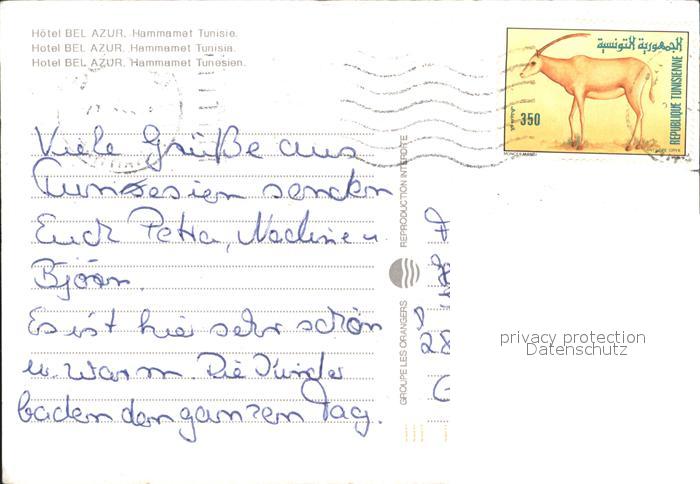 Hôtel BEL AZUR. Hammamet Tunisie.
Hotel BEL AZUR. Hammamet Tunisia.
Hotel BEL AZUR. Hammamet Tunesien.
الجمهورية التونسية
REPUBLIQUE TUNISIENNE
350
Viele Grüße aus
Tunesien senden
Euch Petra, Nadine u
Björn.
Es ist hie sehr schön
u. warm. Die Kinder
baden den ganzen Tag.
REPRODUCTION INTERDITE
GROUPE LES ORANGERS
28
privacy protection
Datenschutz